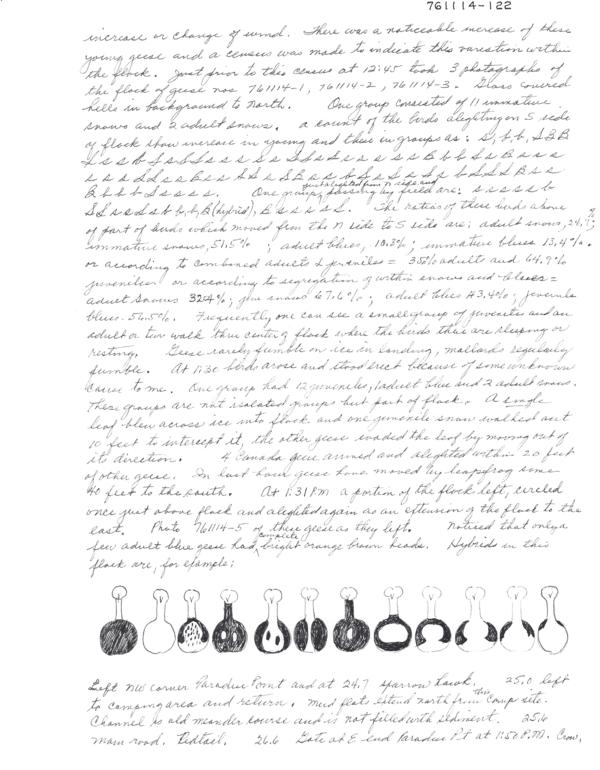 761114-122
increase or change of wind. There was a noticeable increase of these
young geese and a census was made to indicate this variation within
the flock. Just prior to this census at 12:45 took 3 photographs of
the flock of geese nos 761114-1, 761114-2, 761114-3. Grass covered
hills in background to north. One group consisted of 11 immature
snows and 2 adult snows. A count of the birds alighting on S side
of flock show increase in young and their in groups as: s, b, b, S B B
One group just alighted from N side and passing by field are: s s s s s b
b, b, B (hybrid), The ratios of these birds alone
of part of birds which moved from the N side to S side are; adult snows, 24.7%;
immature snows, 51.5%; adult blues, 10.3%; immature blues 13.4%.
or according to combined adults & juveniles = 35% adults and 64.9%
juveniles or according to segregation of within snows and blues =
adult snows 32.4%; juv snows 67.6%; adult blues 43.4%; juvenile
blues 56.5%. Frequently one can see a small group of juveniles and an
adult or two walk thru center of flock where the birds there are sleeping or
resting. Geese rarely fumble on ice in landing, mallards regularly
fumble. At 1:30 birds arose and stood erect because of some unknown
cause to me. One group had 12 juveniles, 1 adult blue and 2 adult snows.
These groups are not isolated groups but part of flock. A single
leaf blew across ice into flock and one juvenile snow walked out
10 feet to intercept it, the other geese evaded the leaf by moving out of
its direction. 4 Canada geese arrived and alighted within 20 feet
of other geese. In last hour geese have moved by leapfrog some
40 feet to the south. At 1:31 PM a portion of the flock left, circled
once just above flock and alighted again as an extension of the flock to the
east. Photo 761114-5 of these geese as they left. Noticed that only a
few adult blue geese had complete bright orange brown heads. Hybrids in this
flock are, for example:
Left NW corner Paradise Point and at 24.7 sparrow hawk. 25.0 left
to camping area and return. Mud flats extend north from this camp site.
Channel is old meander course and is not filled with sediment. 25.6
main road. Redtail. 26.6 Gate at E end Paradise Pt at 1:50 P.M. Crow.